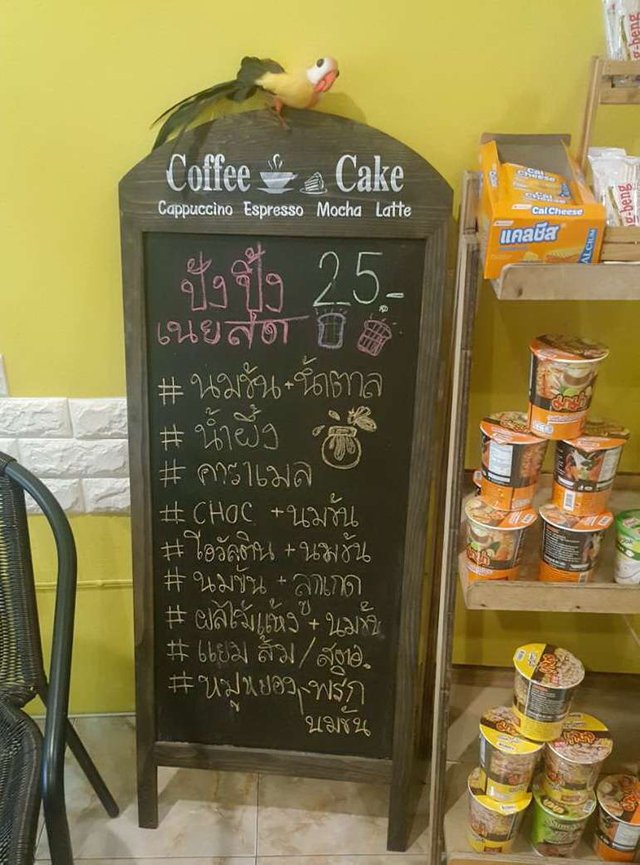 Coffee Cake
Cappuccino Espresso Mocha Latte
ปังปิ้ง 25-
เนยสด
# นมข้น + น้ำตาล
# น้ำผึ้ง
# คาราเมล
# CHOC + นมข้น
# โอวัลติน + นมข้น
# นมข้น + ลูกเกด
# ผลไม้แห้ง + นมข้น
# แยม ส้ม / สตอ.
# หมูหยอง พริก
นมข้น
Cal Cheese
Cal Cheese
แคลชีส
CALCIUM
g-beng
g-beng
มาม่า